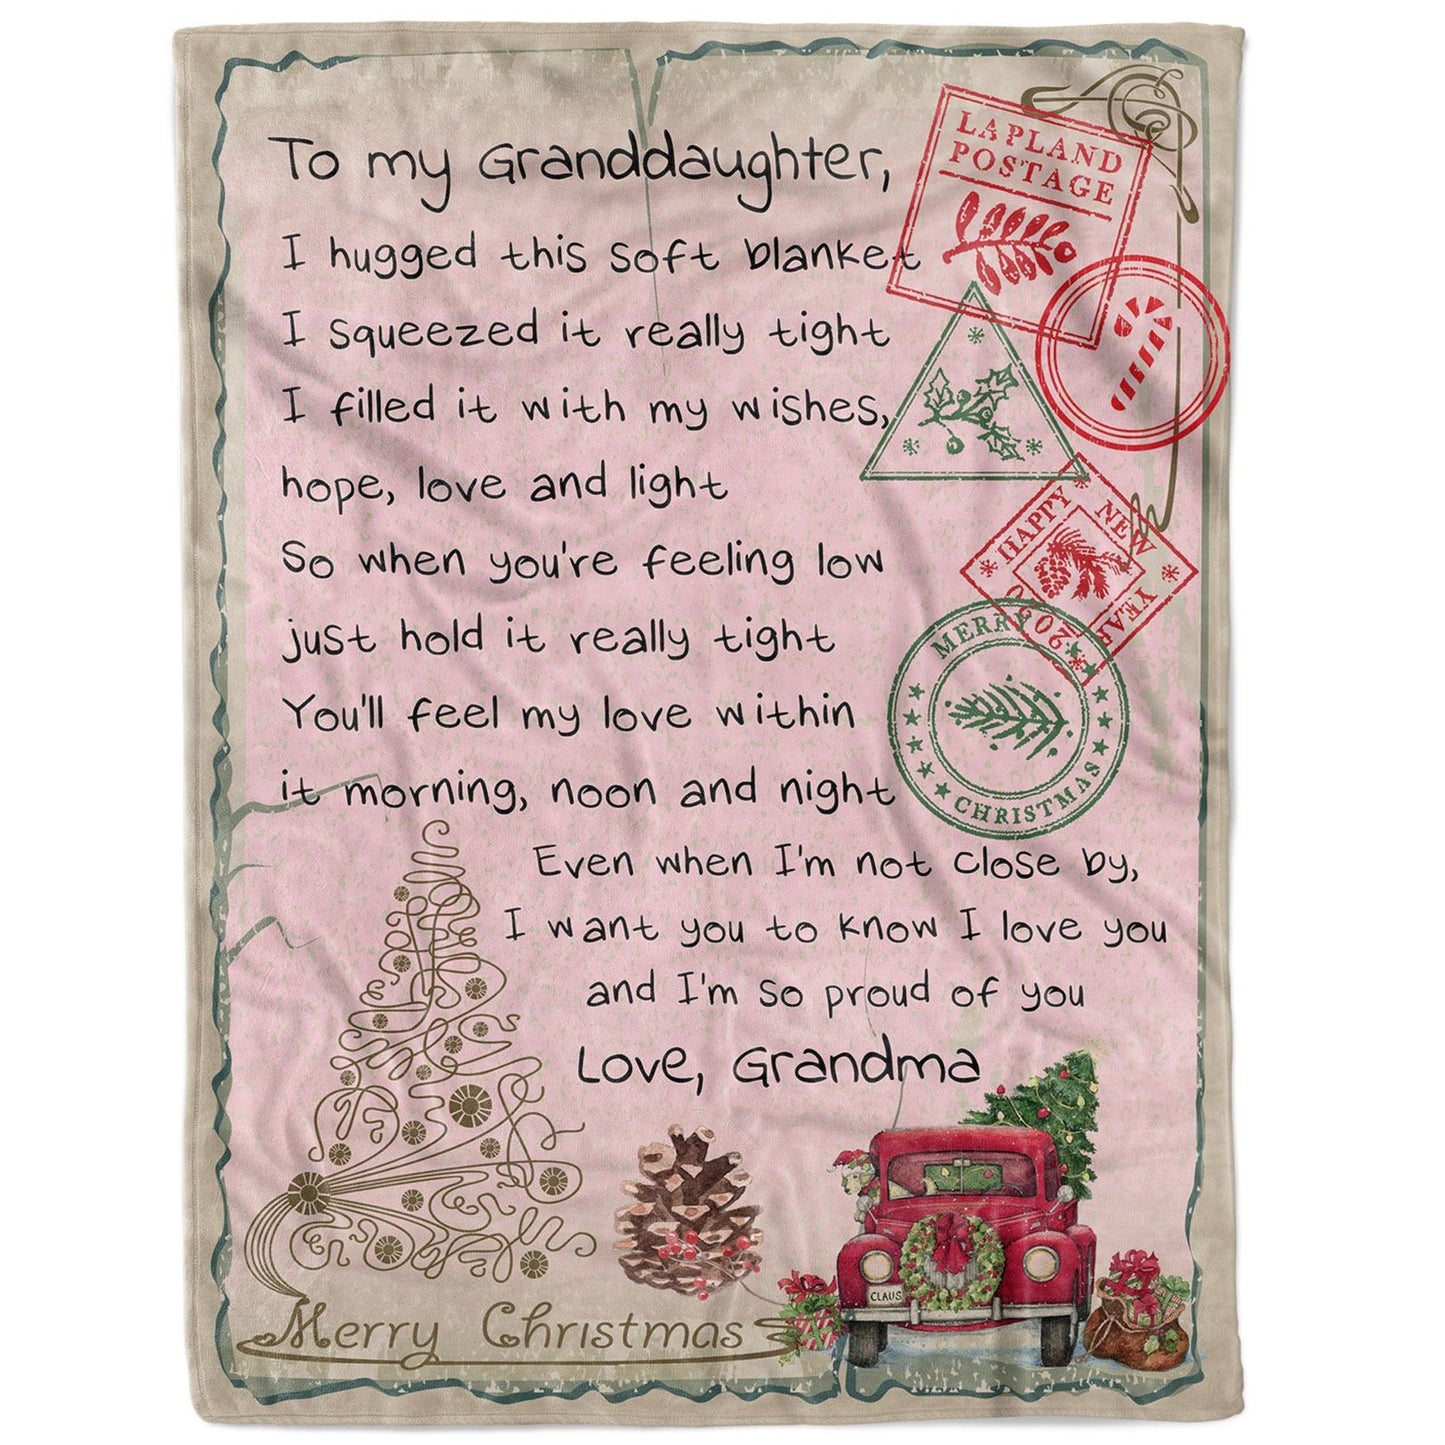 To my Granddaughter,
I hugged this soft blanket
I squeezed it really tight
I filled it with my wishes,
hope, love and light
So when you're feeling low
just hold it really tight
You'll feel my love within
it morning, noon and night
Even when I'm not close by,
I want you to know I love you
and I'm so proud of you
Love, Grandma
LAPLAND
POSTAGE
HAPPY NEW YEAR
MERRY CHRISTMAS
CLAUS
Merry Christmas